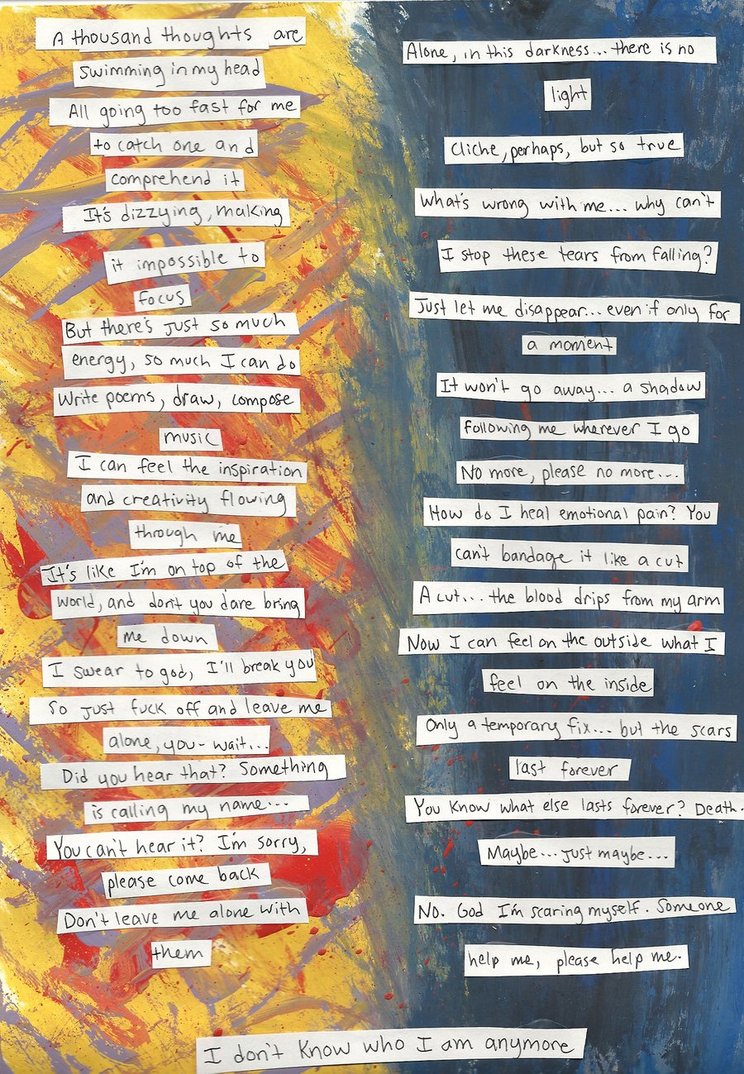 A thousand thoughts are
swimming in my head
All going too fast for me
to catch one and
comprehend it
It's dizzying, making
it impossible to
focus
But there's just so much
energy, so much I can do
Write poems, draw, compose
music
I can feel the inspiration
and creativity flowing
through me
It's like I'm on top of the
world, and don't you dare bring
me down
I swear to god, I'll break you
So just fuck off and leave me
alone, you- wait...
Did you hear that? Something
is calling my name...
You can't hear it? I'm sorry,
please come back
Don't leave me alone with
them
Alone, in this darkness... there is no
light
Cliche, perhaps, but so true
What's wrong with me... why can't
I stop these tears from falling?
Just let me disappear... even if only for
a moment
It won't go away... a shadow
following me wherever I go
No more, please no more...
How do I heal emotional pain? You
can't bandage it like a cut
A cut... the blood drips from my arm
Now I can feel on the outside what I
feel on the inside
Only a temporary fix... but the scars
last forever
You know what else lasts forever? Death.
Maybe... just maybe...
No. God I'm scaring myself. Someone
help me, please help me.
I don't know who I am anymore